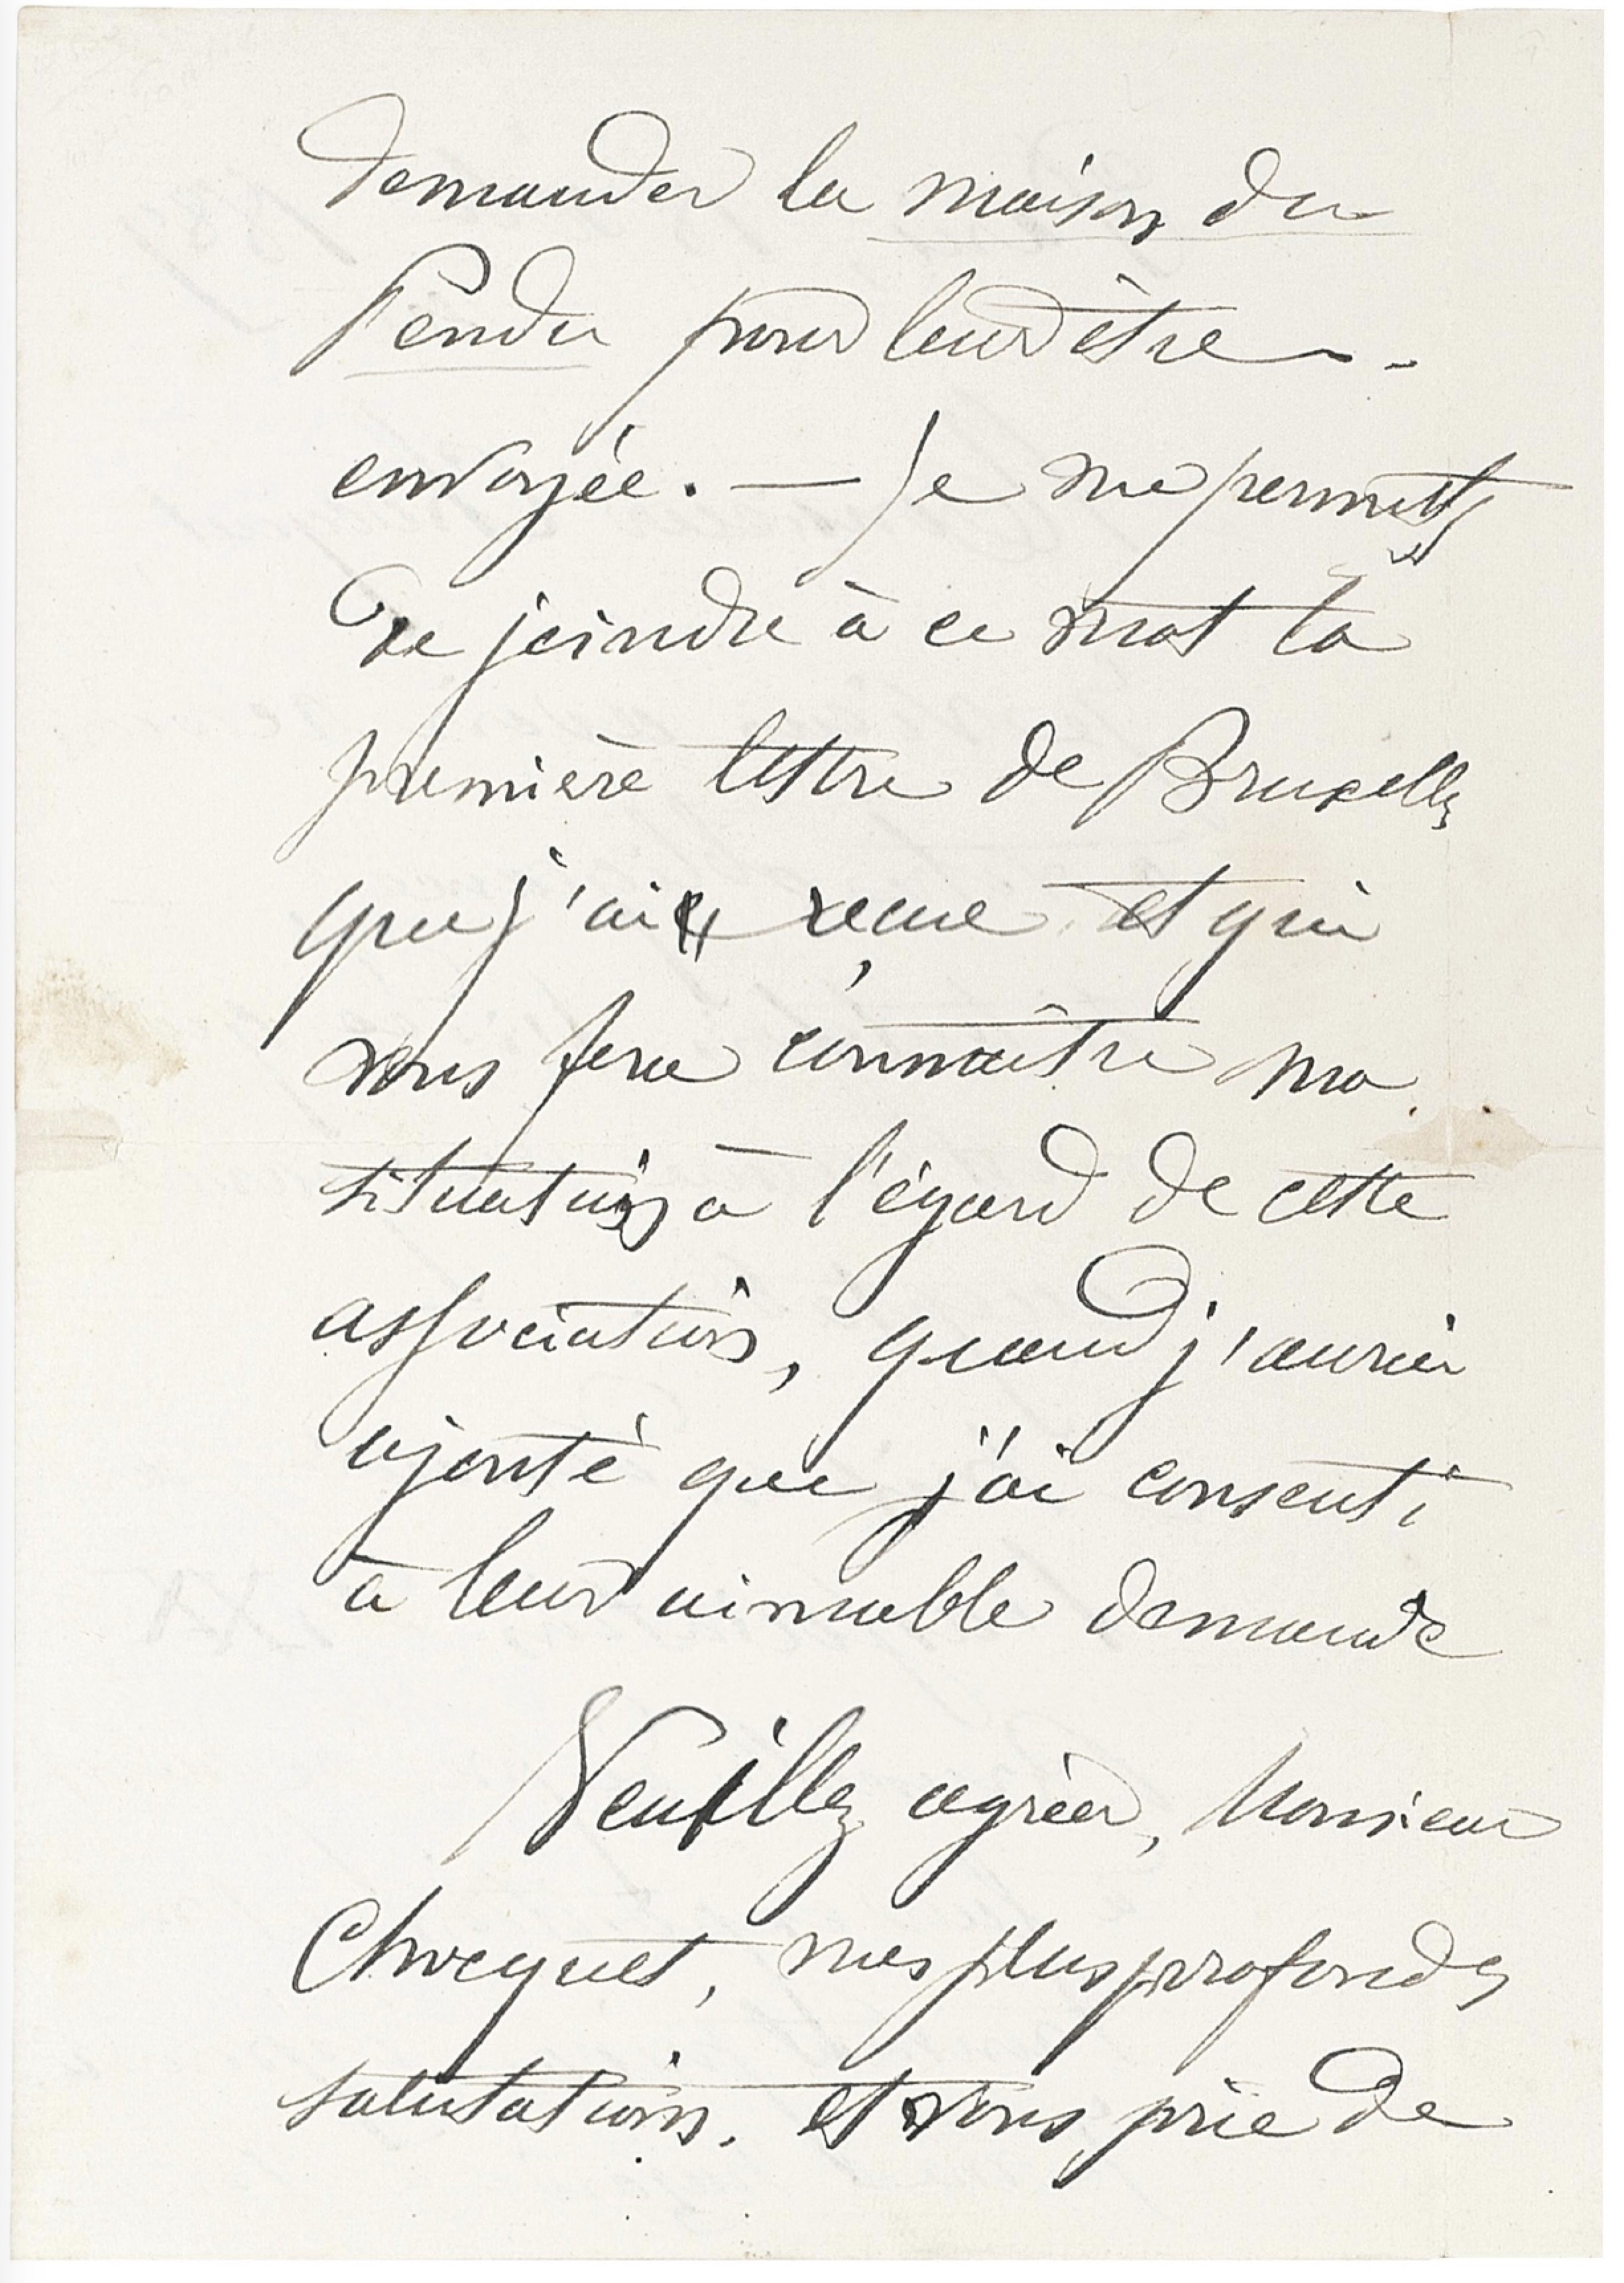 demander la maison du
Pendu pour leur être
envoyée. — Je me permets
de joindre à ce mot la
première lettre de Bruxelles
que j'ai reçue et qui
vous fera connaître ma
situation à l'égard de cette
association, quand j'aurai
ajouté que j'ai consenti
à leur aimable demande
Veuillez agréer, Monsieur
Chocquet, mes plus profondes
salutations. et vous prie de